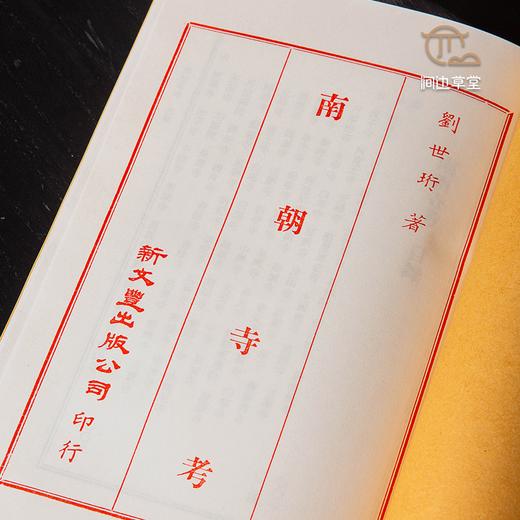 劉世珩 著
南朝寺考
新文豐出版公司 印行
间由草堂